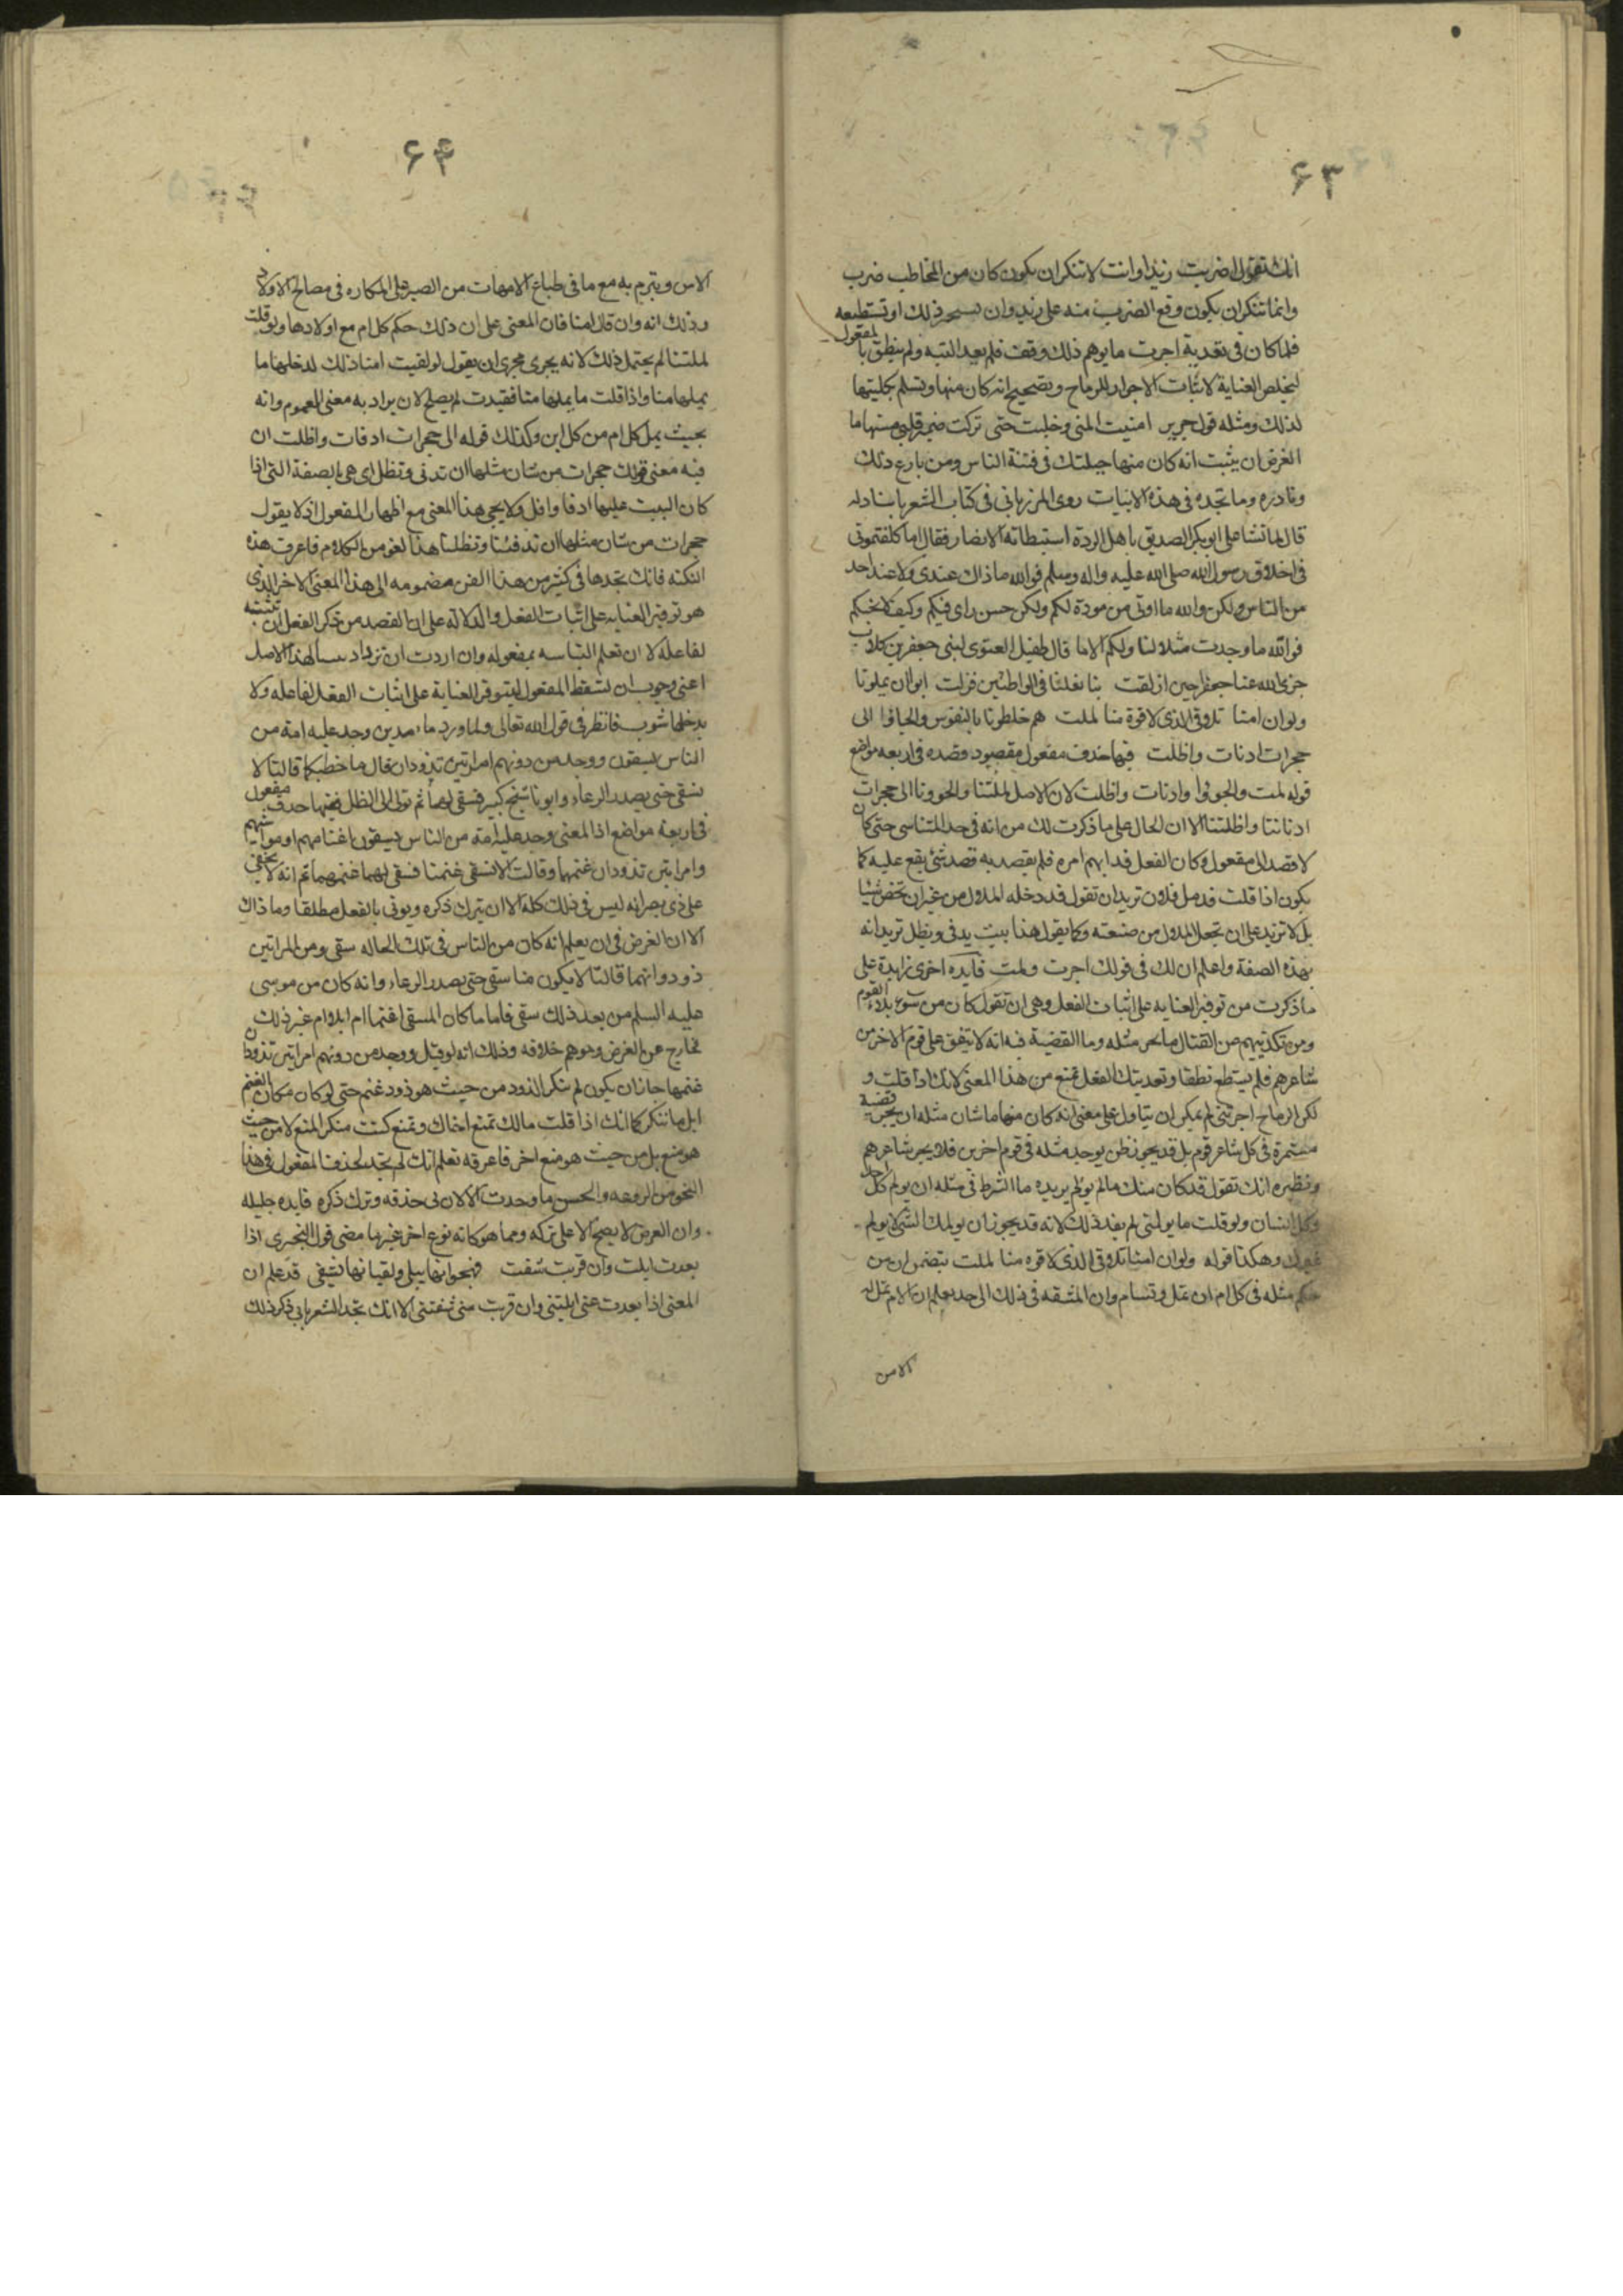 ۶۳
انك تقول اضربت زيدا وانت لا تنكر ان يكون كان من المخاطب ضرب
وانما تنكر ان يكون وقع الضرب منه على زيد وان يستجيز ذلك او تستطيعه
فلما كان فى تعدية اجرت ما يوهم ذلك وقف فلم يعد البتة ولم ينطق بالمفعول
لتخلص العناية لاثبات الاجرار للرماح وتصحيح انه كان منها وتسلم بكليتها
لذلك ومثله قول جرير امنيت المنى وخلبت حتى تركت ضمير قلبى مستهاما
الغرض ان يثبت انه كان منها جبلتك فى فتنة الناس ومن بارع ذلك
ونادره وما تجده فى هذه الابيات روى المرزبانى فى كتاب الشعر باسناد له
قال لما تشاغل ابوبكر الصديق باهل الردة استبطاته الانصار فقال اما كلفتمونى
فى اخلاق رسول الله صلى الله عليه واله وسلم فوالله ما ذاك عندى ولا عند احد
من الناس ولكن والله ما اوتى من مودة لكم ولكن حسن راى فيكم وكيف لا نحبكم
فوالله ما وجدت مثلا لنا ولكم الا ما قال طفيل الغنوى لبنى جعفر بن كلاب
جزى الله عنا جعفرا حين ازلقت بنا نعلنا فى الواطئين فزلت ابوا ان يملونا
ولو ان امنا تلاقى الذى لاقوة منا لملت هم خلطونا بالنفوس والجاوا الى
حجرات ادفات واظلت فيها حذف مفعول مقصود قصده فى اربعه مواضع
قوله لملت والجوا وادفات واظلت لان الاصل لملتنا والجوونا الى حجرات
ادفاتنا واظلتنا الا ان الحال على ما ذكرت لك من انه فى حد المتناسى حتى كان
لا قصد الى مفعول وكان الفعل قد ابهم امره فلم يقصد به قصد شئ يقع عليه كما
يكون اذا قلت قد مل فلان تريد ان تقول قد دخله الملال من غير ان تخص شيئا
بل لا تزيد على ان تجعل الملال من صنعته وكما يقول هذا بيت يدفى ويظل تريد انه
بهذه الصفة واعلم ان لك فى قولك اجرت ولملت فايده اخرى زايدة على
ما ذكرت من توفير العنايه على اثبات الفعل وهى ان تقول كان من سوء بلاء القوم
ومن تكذيبهم عن القتال ما يجر مثله وما القضية فيه انه لا يتفق على قوم الا خرس
شاعرهم فلم يستطع نطقا وتعديتك الفعل تمنع من هذا المعنى لانك اذا قلت و
لكن الرماح اجرتنى لم يمكن ان يتاول على معنى انه كان منها ما شان مثله ان يجر قضية
مستمرة فى كل شاعر قوم بل قد يجوز ظن يوجد مثله فى قوم اخرين فلا يجر شاعرهم
ونظيره انك تقول قد كان منك ما لم يولم يريده ما الشرط فى مثله ان يولم كل احد
وكل انسان ولو قلت ما يولمنى لم يفد ذلك لانه قد يجوز ان يولمك الشئ لا يولم
غيرك وهكذا قوله ولو ان امنا تلاقى الذى لاقوه منا لملت يتضمن ان من
حكم مثله فى كل ام ان تمل وتسام وان المشقه فى ذلك الى حد يعلم ان الام تمل له
الامن
۶۴
الاس ويتبرم به مع ما فى طباع الامهات من الصبر على المكاره فى مصالح الاولاد
وذلك انه وان قال امنا فان المعنى على ان ذلك حكم كل ام مع اولادها ولو قلت
لملتنا لم يحتمل ذلك لانه يجرى مجرى ان يقول لو لقيت امنا ذلك لدخلها ما
يملها منا واذا قلت ما يملها منا فقيدت لم يصلح لان يراد به معنى العموم وانه
بحيث يمل كل ام من كل ابن وكذلك قوله الى حجرات ادفات واظلت ان
فيه معنى قولك حجرات من شان مثلها ان تدفى وتظل اى هى بالصفة التى اذا
كان البيت عليها ادفا واظل ولا يجى هذا المعنى مع اظهار المفعول اذ لا يقول
حجرات من شان مثلها ان تدفئنا وتظلنا هذا لغو من الكلام فاعرف هذه
النكته فانك تجدها فى كثير من هذا الفن مضمومه الى هذا المعنى الاخر الذى
هو توفير العنايه على اثبات الفعل والدلالة على ان القصد من ذكر الفعل ان تثبته
لفاعله لا ان تعلم التباسه بمفعوله وان اردت ان تزداد تبيينا لهذا الاصل
اعنى وجوب ان تسقط المفعول ليتوفر العناية على اثبات الفعل لفاعله ولا
يدخلها شوب فانظر فى قول الله تعالى ولما ورد ماء مدين وجد عليه امة من
الناس يسقون ووجد من دونهم امراتين تذودان قال ما خطبكما قالتا لا
نسقى حتى يصدر الرعاء وابونا شيخ كبير فسقى لهما ثم تولى الى الظل ففيها حذف مفعول
فى اربعة مواضع اذ المعنى وجد عليه امة من الناس يسقون اغنامهم او مواشيهم
وامراتين تذودان غنمهما وقالت لا نسقى غنمنا فسقى لهما غنمهما ثم انه لا يخفى
على ذى بصر انه ليس فى ذلك كله الا ان يترك ذكره ويوتى بالفعل مطلقا وما ذاك
الا ان الغرض فى ان يعلم انه كان من الناس فى تلك الحاله سقى ومن المراتين
ذود وانهما قالتا لا يكون منا سقى حتى يصدر الرعاء وانه كان من موسى
عليه السلم من بعد ذلك سقى فاما ما كان المسقى اغنما ام ابلا ام غير ذلك
فخارج عن الغرض وموهم خلافه وذلك انه لو قيل ووجد من دونهم امراتين تذودان
غنمهما جاز ان يكون لم ينكر الذود من حيث هو ذود غنم حتى لو كان مكان الغنم
ابل ما ننكر كما انك اذا قلت مالك تمنع اخاك وتمنع كنت منكر المنع لا من حيث
هو منع بل من حيث هو منع اخ فاعرفه تعلم انك لم تجد لحذف المفعول فى هذا
النحو من الروعه والحسن ما وجدت الا لان فى حذفه وترك ذكره فايده جليله
وان الغرض لا يصح الا على تركه ومما هو كانه نوع اخر غير ما مضى قول البحترى اذا
بعدت ابلت وان قربت شفت فهجرانها يبلى ولقيانها يشفى قد علم ان
المعنى اذا بعدت عنى ابلتنى وان قربت منى شفتنى الا انك تجد الشعر يابى ذكر ذلك